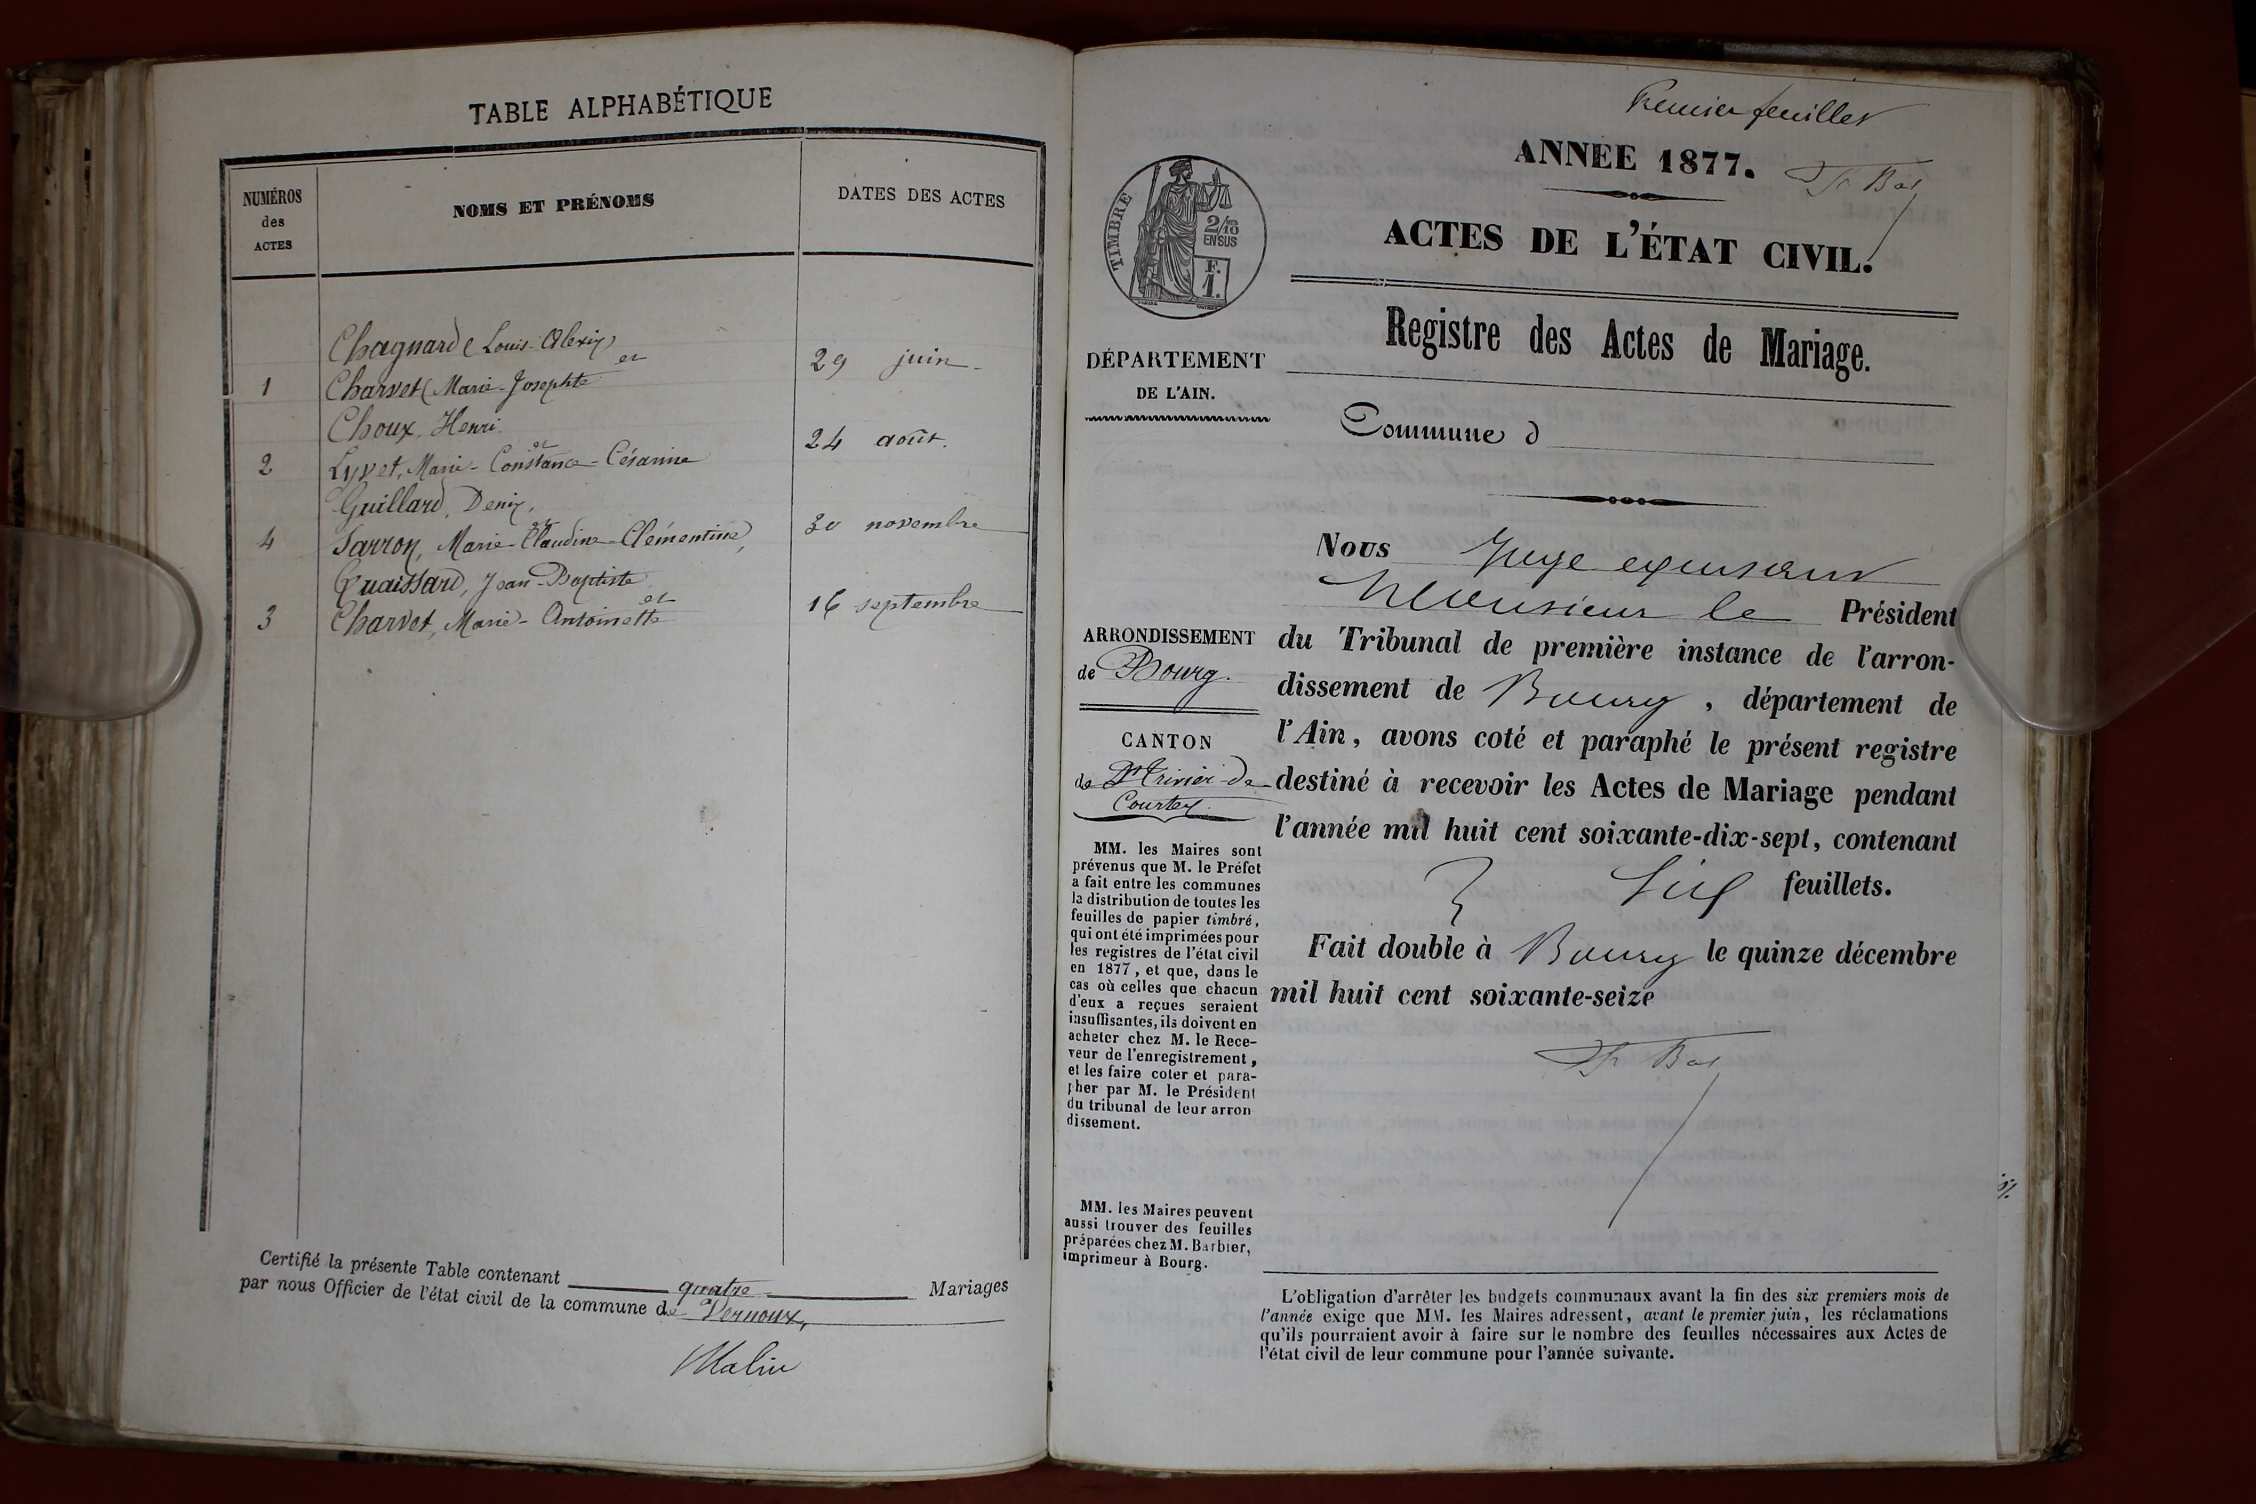 TABLE ALPHABÉTIQUE
NUMÉROS
des
ACTES
NOMS ET PRÉNOMS
DATES DES ACTES
Chagnard Louis-Alexis
et
1 Charvet Marie-Josephte 29 juin
Choux, Henri
et
2 Lyvet, Marie-Constance-Césarine 24 août.
Guillard, Denis,
et
4 Sarron, Marie-Claudine-Clémentine, 30 novembre
Quaissard, Jean-Baptiste
et
3 Charvet, Marie-Antoinette 16 septembre
Certifié la présente Table contenant quatre Mariages
par nous Officier de l'état civil de la commune de Vernoux,
Premier feuillet
ANNÉE 1877.
ACTES DE L'ÉTAT CIVIL.
TIMBRE
2/10
EN SUS
F.
1.
Registre des Actes de Mariage.
DÉPARTEMENT
DE L'AIN.
Commune d
Nous Juge
Monsieur le Président
du Tribunal de première instance de l'arron-
dissement de Bourg, département de
l'Ain, avons coté et paraphé le présent registre
destiné à recevoir les Actes de Mariage pendant
l'année mil huit cent soixante-dix-sept, contenant
six feuillets.
Fait double à Bourg le quinze décembre
mil huit cent soixante-seize
ARRONDISSEMENT
de Bourg.
CANTON
de St Trivier-de
Courtes.
MM. les Maires sont
prévenus que M. le Préfet
a fait entre les communes
la distribution de toutes les
feuilles de papier timbré,
qui ont été imprimées pour
les registres de l'état civil
en 1877, et que, dans le
cas où celles que chacun
d'eux a reçues seraient
insuffisantes, ils doivent en
acheter chez M. le Rece-
veur de l'enregistrement,
et les faire coter et para-
pher par M. le Président
du tribunal de leur arron
dissement.
MM. les Maires peuvent
aussi trouver des feuilles
préparées chez M. Barbier,
imprimeur à Bourg.
L'obligation d'arrêter les budgets communaux avant la fin des six premiers mois de
l'année exige que MM. les Maires adressent, avant le premier juin, les réclamations
qu'ils pourraient avoir à faire sur le nombre des feuilles nécessaires aux Actes de
l'état civil de leur commune pour l'année suivante.